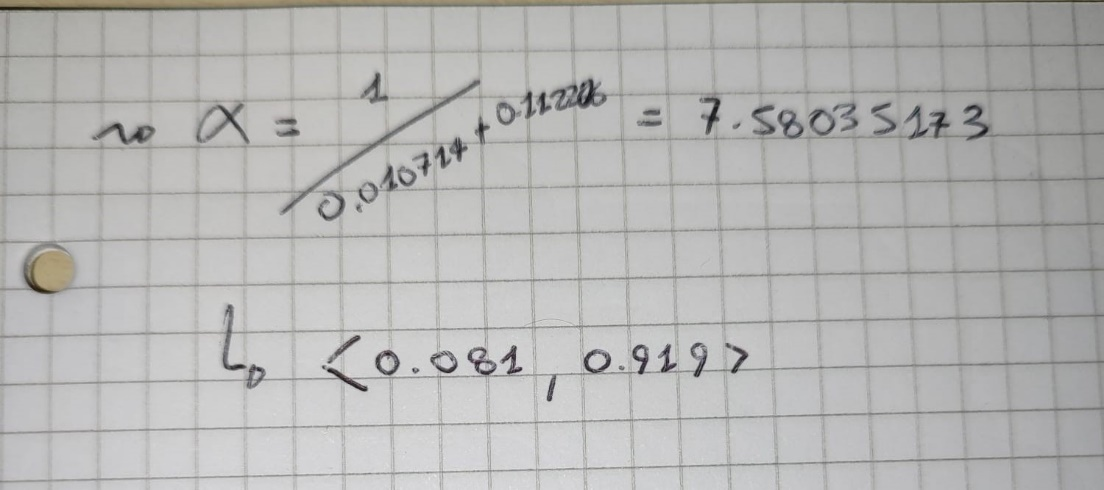 ~o α = 1 / 0.010717 + 0.112206 = 7.58035173
↳ <0.081, 0.919>